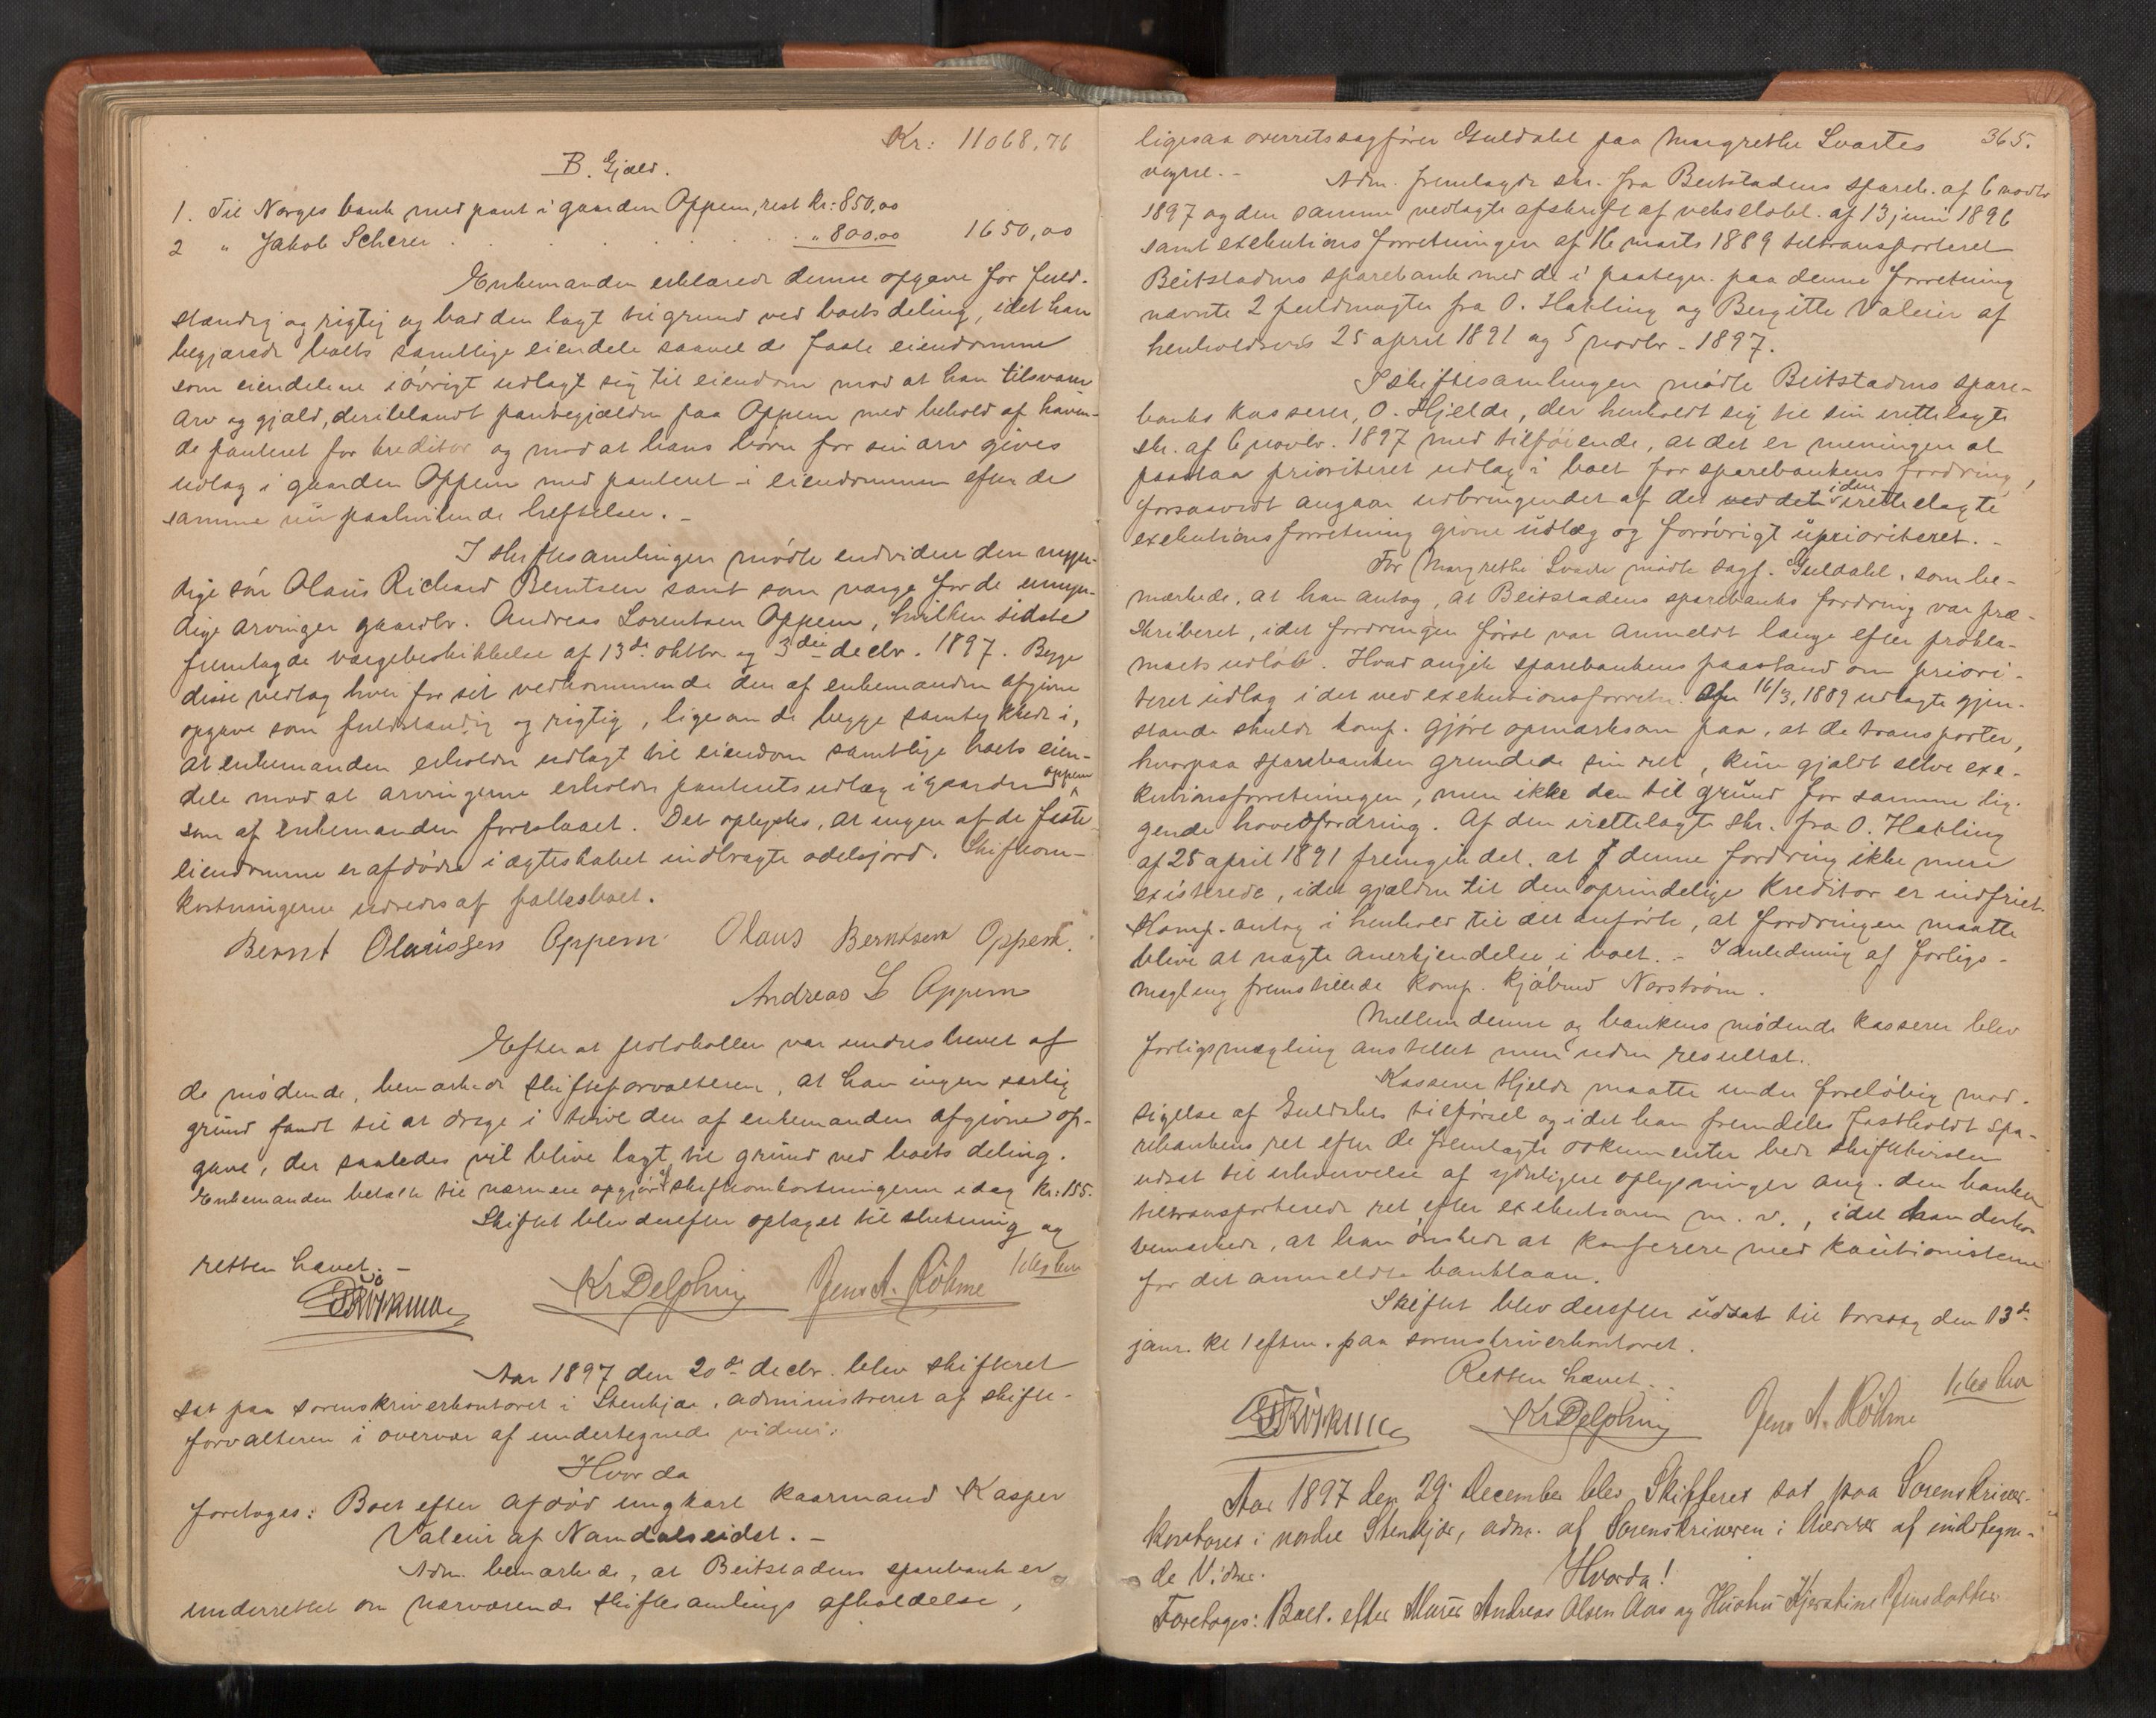 Kr: 11068,76
B. Gjæld.
1. Til Norges bank med pant i gaarden Oppem, rest Kr: 850,00
2 " Jakob Scherer . . . . . . " 800,00 1650,00
Enkemanden erklærede denne opgave for fuld-
stændig og rigtig og bad den lagt til grund ved boets deling, idet han
begjærede boets samtlige eiendele saavel de faste eiendomme
som eiendelene iøvrigt udlagt sig til eiendom mod at han tilsvarer
arv og gjæld, deriblandt pantegjælden paa Oppem med behold af haven-
de panteret for kreditor og mod at hans børn for sin arv gives
udlæg i gaarden Oppem med panteret i eiendommen efter de
samme nu paahvilende heftelser. -
I skiftesamlingen mødte endvidere den myn-
dige søn Olaus Richard Berntsen samt som værge for de umyn-
dige arvinger gaardbr. Andreas Lorentsen Oppem, hvilken sidste
fremlagde værgebeskikkelse af 13de oktbr. og 3die decbr. 1897. Begge
disse vedtog hver for sit vedkommende den af enkemanden afgivne
opgave som fuldstændig og rigtig, ligesom de begge samtykkede i,
at enkemanden erholder udlagt til eiendom samtlige boets eien-
dele mod at arvingerne erholder panterets udlæg i gaarden Oppem
som af enkemanden foreslaaet. Det oplystes, at ingen af de faste
eiendomme er afdødes i ægteskabet indbragte odelsjord. Skifteom-
kostningerne udredes af fællesboet.
Bernt Olaüssen Oppem Olaus Berntsen Oppem.
Andreas L Oppem
Efter at protokollen var underskrevet af
de mødende, bemærkede skifteforvalteren, at han ingen særlig
grund fandt til at drage i tvivl den af enkemanden afgivne op-
gave, der saaledes vil blive lagt til grund ved boets deling.
Enkemanden betalte til nærmere opgjør af skifteomkostningerne idag Kr: 155.
Skiftet blev derefter optaget til slutning og
retten hævet. -
Kr Delphin Jens A. Røhme
Aar 1897 den 20de decbr. blev skifteret
sat paa sorenskriverkontoret i Stenkjær, administreret af skifte-
forvalteren i overvær af undertegnede vidner:
Hvorda
foretoges: Boet efter afdød ungkarl kaarmand Kasper
Valeur af Namdalseidet. -
Adm. bemærkede, at Beitstadens sparebank er
underrettet om nærværende skiftesamlings afholdelse,
365.
ligesaa overretssagfører Guldahl paa Margrethe Svartes
vegne. - Adm. fremlagde skr. fra Beitstadens spareb. af 6 novbr
1897 og den samme vedlagte afskrift af vekselobl. af 13 juni 1896
samt exekutionsforretningen af 16 marts 1889 tiltransporteret
Beitstadens sparebank med de i paategn. paa denne forretning
nævnte 2 fuldmagter fra O. Hakling og Bergitte Valeur af
henholdsvis 25 april 1891 og 5 novbr. 1897.
I skiftesamlingen mødte Beitstadens spare-
banks kasserer, O. Hjelde, der henholdt sig til sin irettelagte
skr. af 6 novbr. 1897 med tilføiende, at det er meningen at
paastaa prioriteret udlæg i boet for sparebankens fordring,
forsaavidt angaar udbringendet af det ved det i den irettelagte
exekutionsforretning givne udlæg og forøvrigt uprioriteret. -
For Margrethe Svarte mødte sagf. Guldahl, som be-
mærkede, at han antog, at Beitstadens sparebanks fordring var præ-
skriberet, idet fordringen først var anmeldt længe efter prokla-
maets udløb. Hvad angik sparebankens paastand om priori-
teret udlæg i det ved exekutionsforretn. af 16/3, 1889 udlagte gjen-
stande skulde komp. gjøre opmærksom paa, at de transporter,
hvorpaa sparebanken grundede sin ret, kun gjaldt selve exe-
kutionsforretningen, men ikke den til grund for samme lig-
gende hovedfordring. Af den irettelagte skr. fra O. Hakling
af 25 april 1891 fremgik det, at denne fordring ikke mere
existerede, idet gjælden til den oprindelige kreditor er indfriet.
Komp. antog i henhold til det anførte, at fordringen maatte
blive at nægte anerkjendelse i boet. - I anledning af forligs-
mægling fremstillede komp. kjøbmd Norstrøm.
Mellem denne og bankens mødende kasserer blev
forligsmægling anstillet men uden resultat.
Kasserer Hjelde maatte under foreløbig mod-
sigelse af Guldahls tilførsel og idet han fremdeles fastholdt spa-
rebankens ret efter de fremlagte dokumenter bede skiftetersen
udsat til erhvervelse af yderligere oplysninger ang. den banken
tiltransporterede ret efter exekutionen m. v., idet han derhos
bemærkede, at han ønskede at konferere med kautionisterne
for det anmeldte banklaan.
Skiftet blev derefter udsat til torsdag den 13de
janr. kl 1 eftm. paa sorenskriverkontoret.
Retten hævet. -
Kr Delphin Jens A. Røhme
Aar 1897 den 29. December blev Skifteret sat paa Sorenskriver-
kontoret i nordre Stenkjær, adm. af Sorenskriveren i Overvær af undertegne-
de Vidner.
Hvorda!
Foretoges: Boet efter Murer Andreas Olsen Aas og Hustru Kjerstine Jensdatter